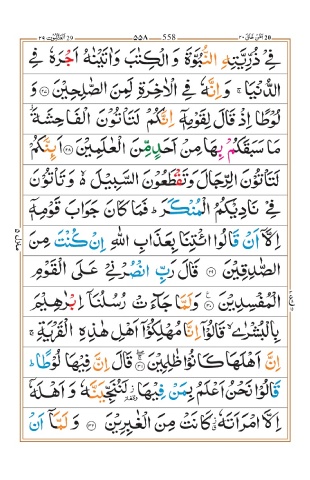 العنكبوت ٢٩ ٥٥٨ 558 امن خلق ٢٠
فِىْ ذُرِّيَّتِهِ النُّبُوَّةَ وَالْكِتٰبَ وَاٰتَيْنٰهُ اَجْرَهٗ فِى
الدُّنْيَا ۚ وَاِنَّهٗ فِى الْاٰخِرَةِ لَمِنَ الصّٰلِحِيْنَ ۝٢٧ وَ
لُوْطًا اِذْ قَالَ لِقَوْمِهٖۤ اِنَّكُمْ لَتَاْتُوْنَ الْفَاحِشَةَ ؗ
مَا سَبَقَكُمْ بِهَا مِنْ اَحَدٍ مِّنَ الْعٰلَمِيْنَ ۝٢٨ اَئِنَّكُمْ
لَتَاْتُوْنَ الرِّجَالَ وَتَقْطَعُوْنَ السَّبِيْلَ ۙ۬ وَتَاْتُوْنَ
فِىْ نَادِيْكُمُ الْمُنْكَرَ ؕ فَمَا كَانَ جَوَابَ قَوْمِهٖۤ
اِلَّاۤ اَنْ قَالُوا ائْتِنَا بِعَذَابِ اللّٰهِ اِنْ كُنْتَ مِنَ
الصّٰدِقِيْنَ ۝٢٩ قَالَ رَبِّ انْصُرْنِىْ عَلَى الْقَوْمِ
الْمُفْسِدِيْنَ ۝٣٠ وَلَمَّا جَآءَتْ رُسُلُنَاۤ اِبْرٰهِيْمَ
بِالْبُشْرٰى ۙ قَالُوْۤا اِنَّا مُهْلِكُوْۤا اَهْلِ هٰذِهِ الْقَرْيَةِ ۚ
اِنَّ اَهْلَهَا كَانُوْا ظٰلِمِيْنَ ۝٣١ قَالَ اِنَّ فِيْهَا لُوْطًا ؕ
قَالُوْا نَحْنُ اَعْلَمُ بِمَنْ فِيْهَا ؗ لَنُنَجِّيَنَّهٗ وَاَهْلَهٗۤ
اِلَّا امْرَاَتَهٗ ؗ كَانَتْ مِنَ الْغٰبِرِيْنَ ۝٣٢ وَلَمَّاۤ اَنْ